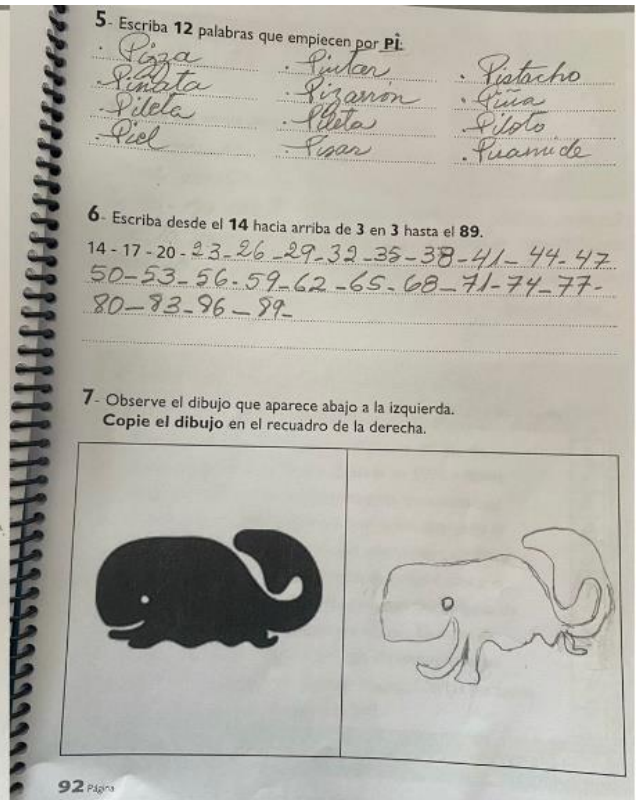 5- Escriba 12 palabras que empiecen por Pi:
. Pizza . Pintar . Pistacho
. Piñata . Pizarrón . Piña
. Pileta . Pileta . Piloto
. Piel . Pisar . Piramide
6- Escriba desde el 14 hacia arriba de 3 en 3 hasta el 89.
14 - 17 - 20 - 23 - 26 - 29 - 32 - 35 - 38 - 41 - 44 - 47
50 - 53 - 56 - 59 - 62 - 65 - 68 - 71 - 74 - 77 -
80 - 83 - 86 - 89 -
7- Observe el dibujo que aparece abajo a la izquierda.
Copie el dibujo en el recuadro de la derecha.
92 Página